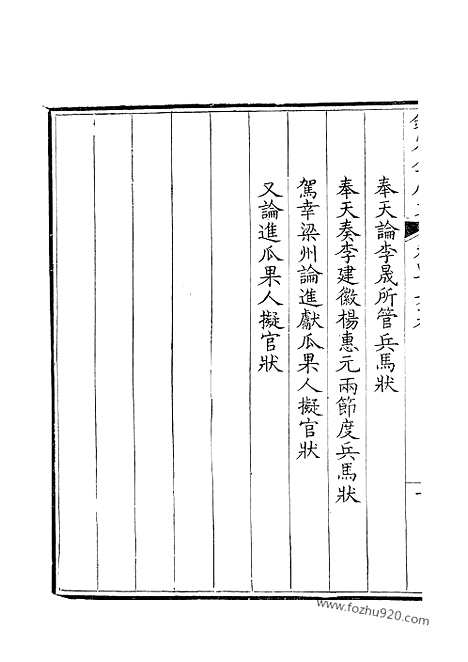 奉天論李晟所管兵馬狀
奉天奏李建徽楊惠元兩節度兵馬狀
駕幸梁州論進獻瓜果人擬官狀
又論進瓜果人擬官狀
www.fozhu920.com